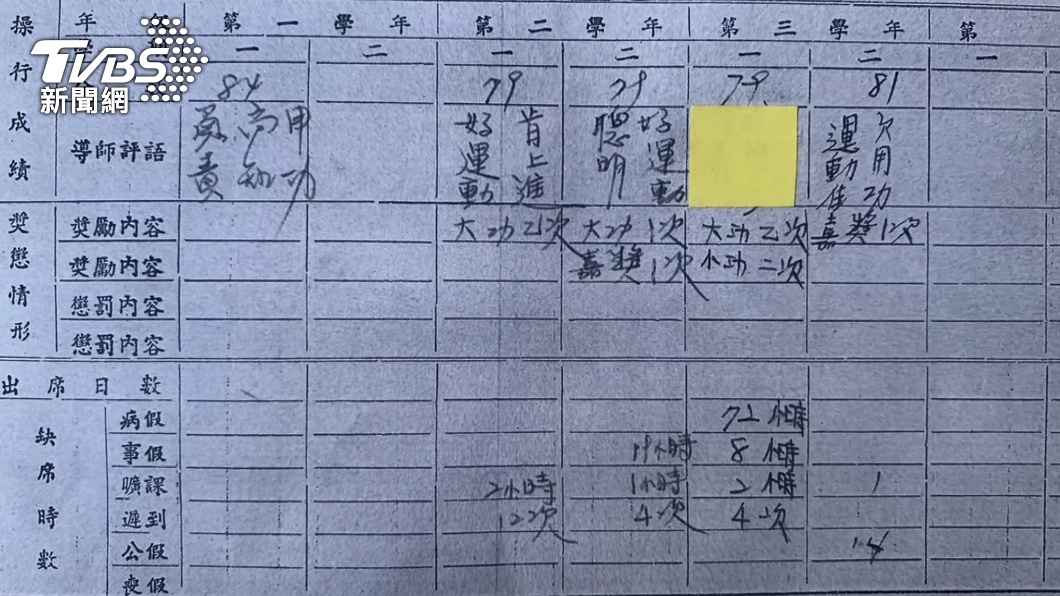 TVBS
新聞網
操行成績
年 第一學年 第二學年 第三學年 第
學 一 二 一 二 一 二 一
84 79 79 79 81
導師評語
好運動 肯上進
聰明 好運動
運動佳 欠用功
獎懲情形
獎勵內容 大功乙次 大功1次 大功乙次 嘉獎1次
獎勵內容 嘉獎1次 小功二次
懲罰內容
懲罰內容
出席日數
缺席時數
病假 72小時
事假 19小時 8小時
曠課 2小時 1小時 2小時 1
遲到 12次 4次 4次
公假
喪假